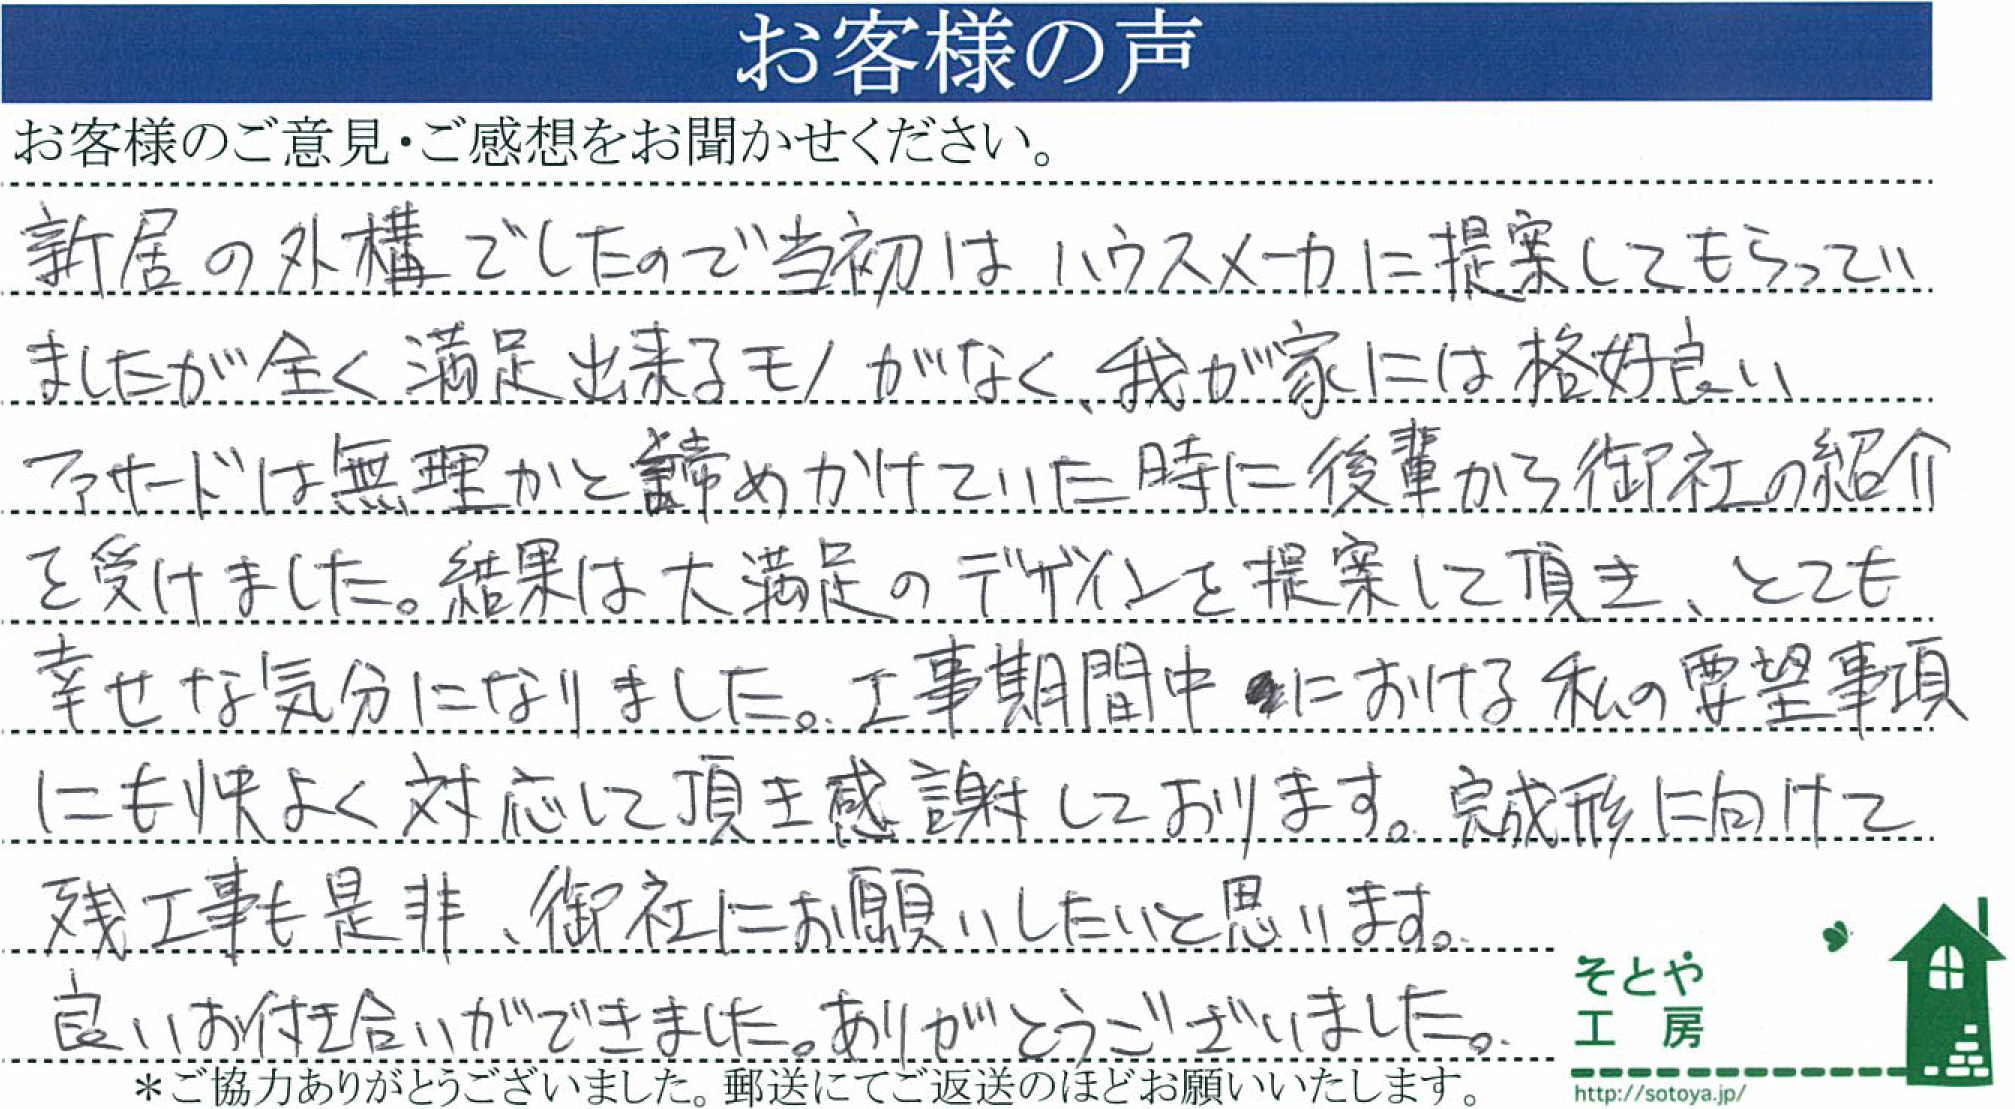 お客様の声
お客様のご意見・ご感想をお聞かせください。
新居の外構でしたので当初はハウスメーカに提案してもらってい
ましたが全く満足出来るモノがなく、我が家には格好良い
ファサードは無理かと諦めかけていた時に後輩から御社の紹介
を受けました。結果は大満足のデザインを提案して頂き、とても
幸せな気分になりました。工事期間中における私の要望事項
にも快よく対応して頂き感謝しております。完成形に向けて
残工事も是非、御社にお願いしたいと思います。
良いお付き合いができました。ありがとうございました。
そとや
工房
http://sotoya.jp/
＊ご協力ありがとうございました。郵送にてご返送のほどお願いいたします。